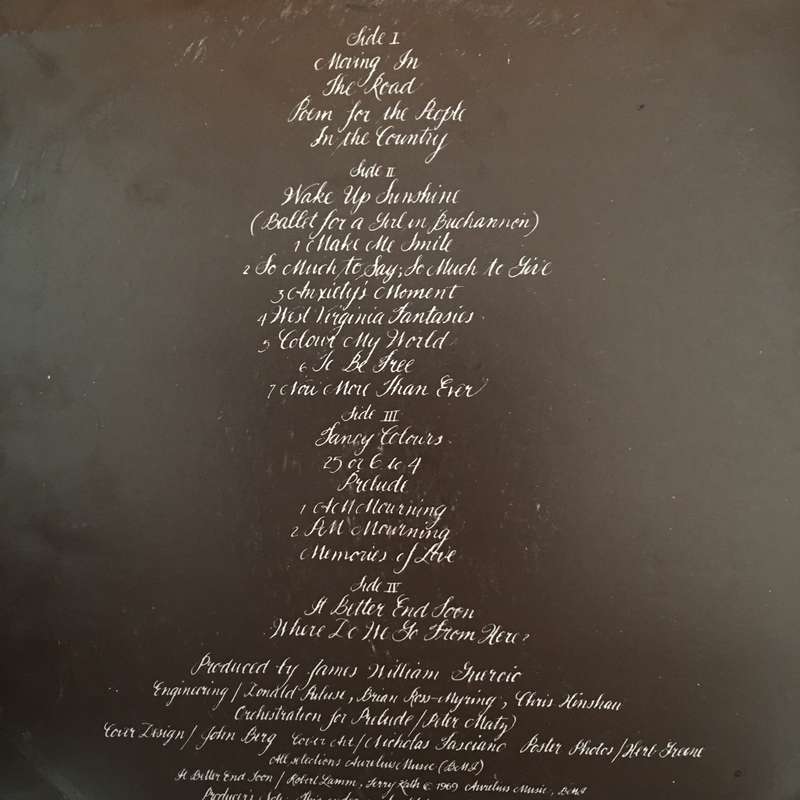 Side I
Moving In
The Road
Poem for the People
In the Country
Side II
Wake Up Sunshine
(Ballet for a Girl in Buchannon)
1 Make Me Smile
2 So Much to Say; So Much to Give
3 Anxiety's Moment
4 West Virginia Fantasies
5 Colour My World
6 To Be Free
7 Now More Than Ever
Side III
Fancy Colours
25 or 6 to 4
Prelude
1 AM Mourning
2 PM Mourning
Memories of Love
Side IV
It Better End Soon
Where Do We Go From Here?
Produced by James William Guercio
Engineering / Donald Puluse, Brian Ross-Myring, Chris Hinshaw
Orchestration for Prelude / Peter Matz)
Cover Design / John Berg Cover Art / Nicholas Fasciano Poster Photos / Herb Greene
All selections Aurelius Music (BMI)
It Better End Soon / Robert Lamm, Terry Kath © 1969 Aurelius Music, BMI
Producer's Note: